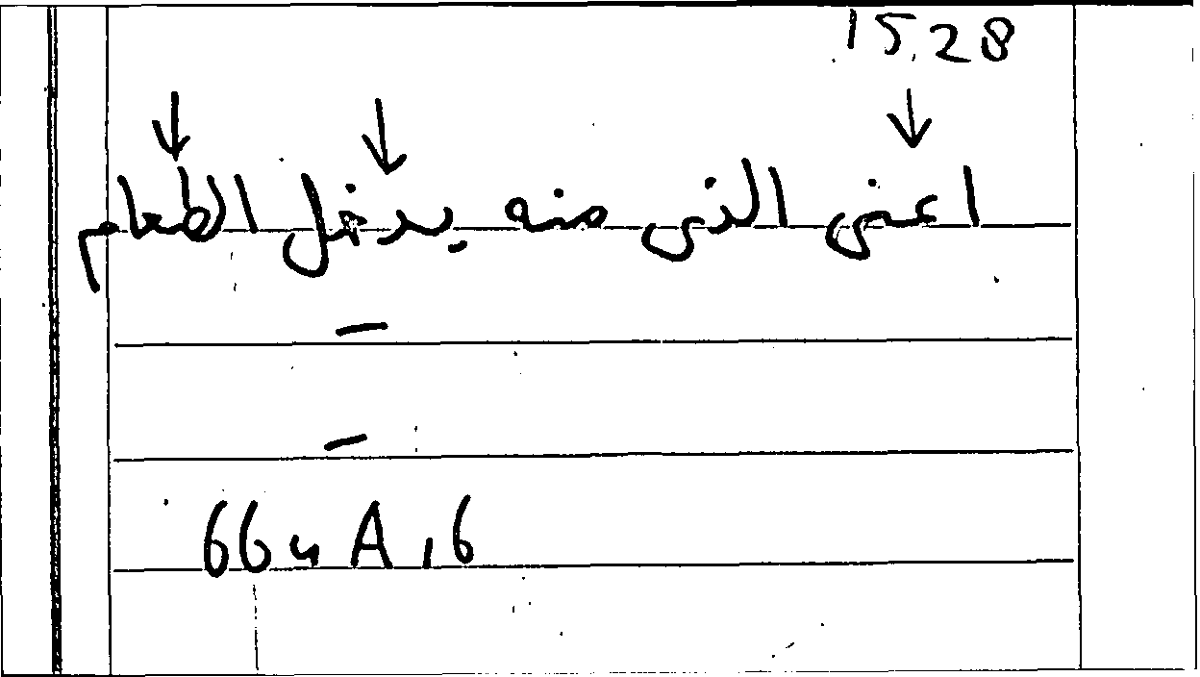 15.28
↓ ↓ ↓
اعنى الذى منه يدخل الطعام
–
–
664 A 16